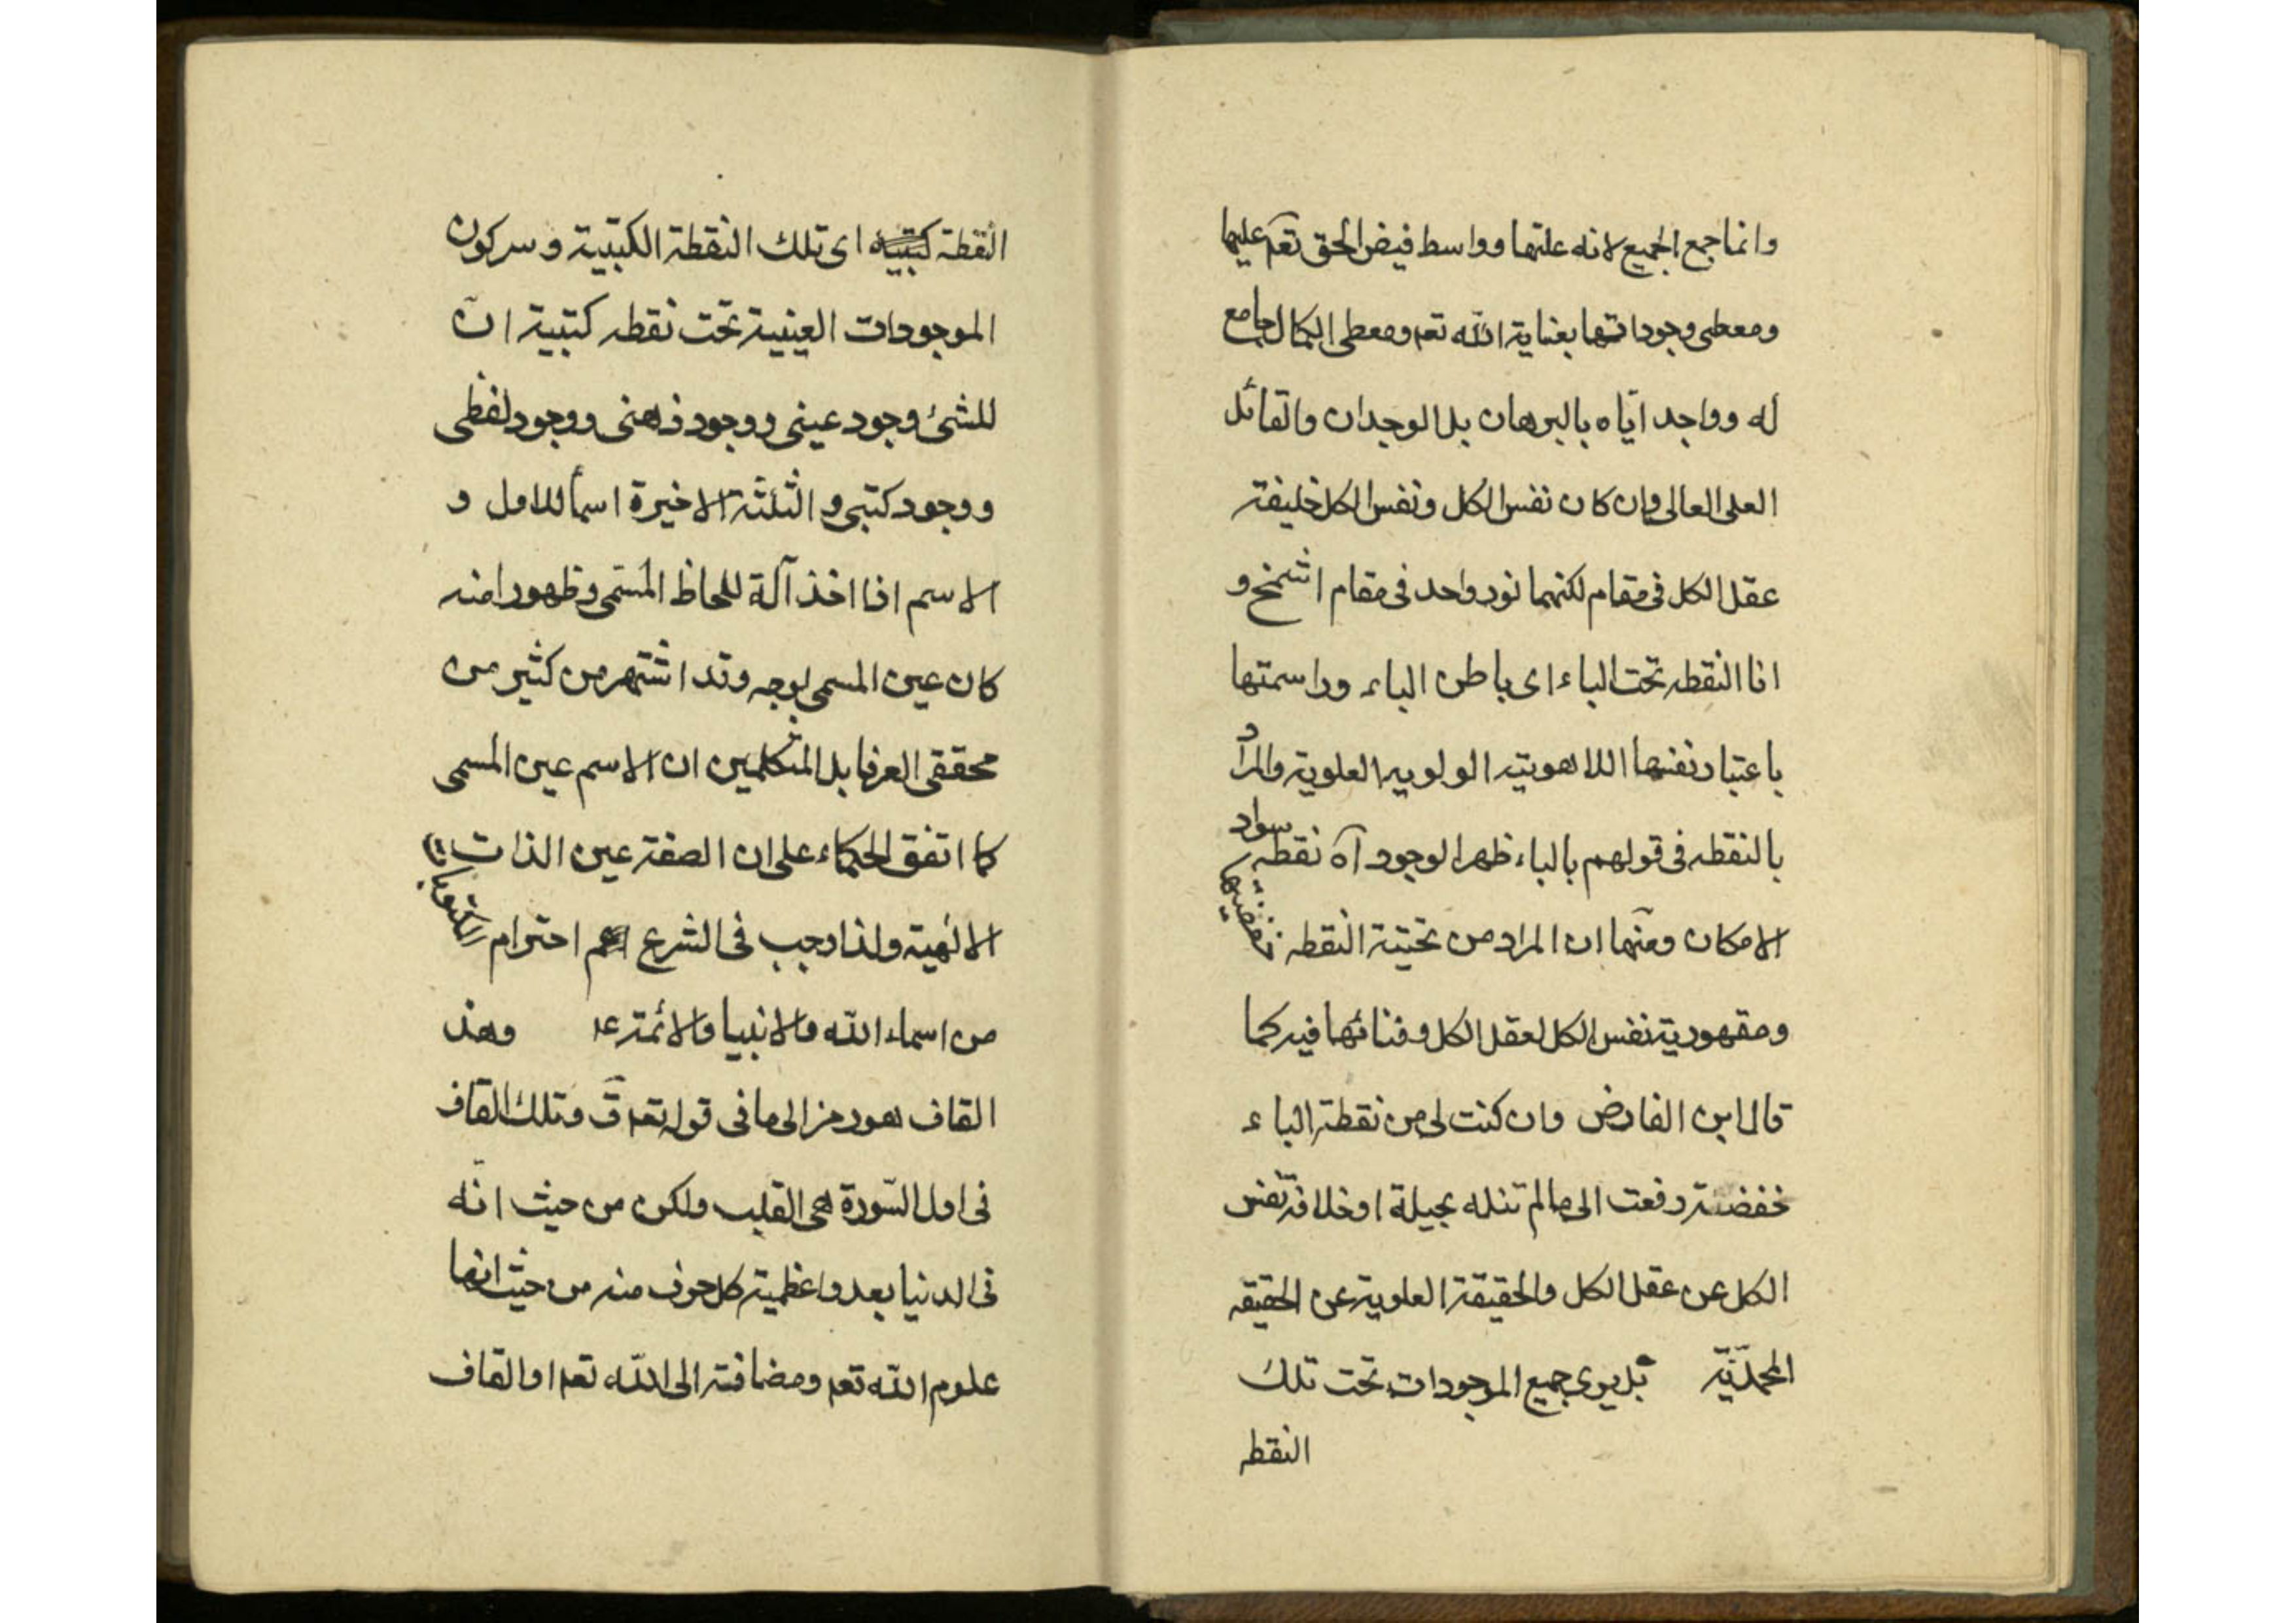 وانما جمع الجميع لانه علتها وواسط فيض الحق تعم عليها
ومعطى وجوداتها بعناية الله تعم ومعطى الكمال جامع
له وواجد اياه بالبرهان بل الوجدان والقائل
العلى العالى وان كان نفس الكل ونفس الكل خليفة
عقل الكل فى مقام لكنهما نور واحد فى مقام اشمخ و
انا النقطه تحت الباء اى باطن الباء وراسمتها
باعتبار نفسها اللاهوتيه الولويه العلوية والمراد
بالنقطه فى قولهم بالباء ظهر الوجود آه نقطه سواد
الامكان ومنها ان المراد من تحتية النقطه خفضيتها
ومقهورية نفس الكل لعقل الكل وفنائها فيه كما
قال ابن الفارض وان كنت لى من نقطة الباء
خفضة رفعت الى ما لم تنله بحيلة او خلافة نفس
الكل عن عقل الكل والحقيقة العلوية عن الحقيقه
المحمدّيّة بل يرى جميع الموجودات تحت تلك
النقطه
النقطة كتبيه اى تلك النقطة الكتبية وسر كون
الموجودات العينية تحت نقطه كتبية انّ
للشئ وجود عينى ووجود ذهنى ووجود لفظى
ووجود كتبى والثلثة الاخيرة اسماً للاول و
الاسم اذا اخذ آلة للحاظ المسّمى وظهورا منه
كان عين المسمى بوجه وقد اشتهر من كثير من
محققى العرفا بل المتكلمين ان الاسم عين المسمى
كما اتفق الحكماء على ان الصفة عين الذات فى
الالهية ولذا وجب فى الشرع احترام المكتوبات
من اسماء الله والانبيا والائمة ع وهذ
القاف هو رمز الى ما فى قوله تعم قٓ وتلك القاف
فى اول السّورة هى القلب ولكن من حيث انّه
فى الدنيا بعد واعظمية كل حرف منه من حيث انها
علوم الله تعم ومضافة الى الله تعم او القاف